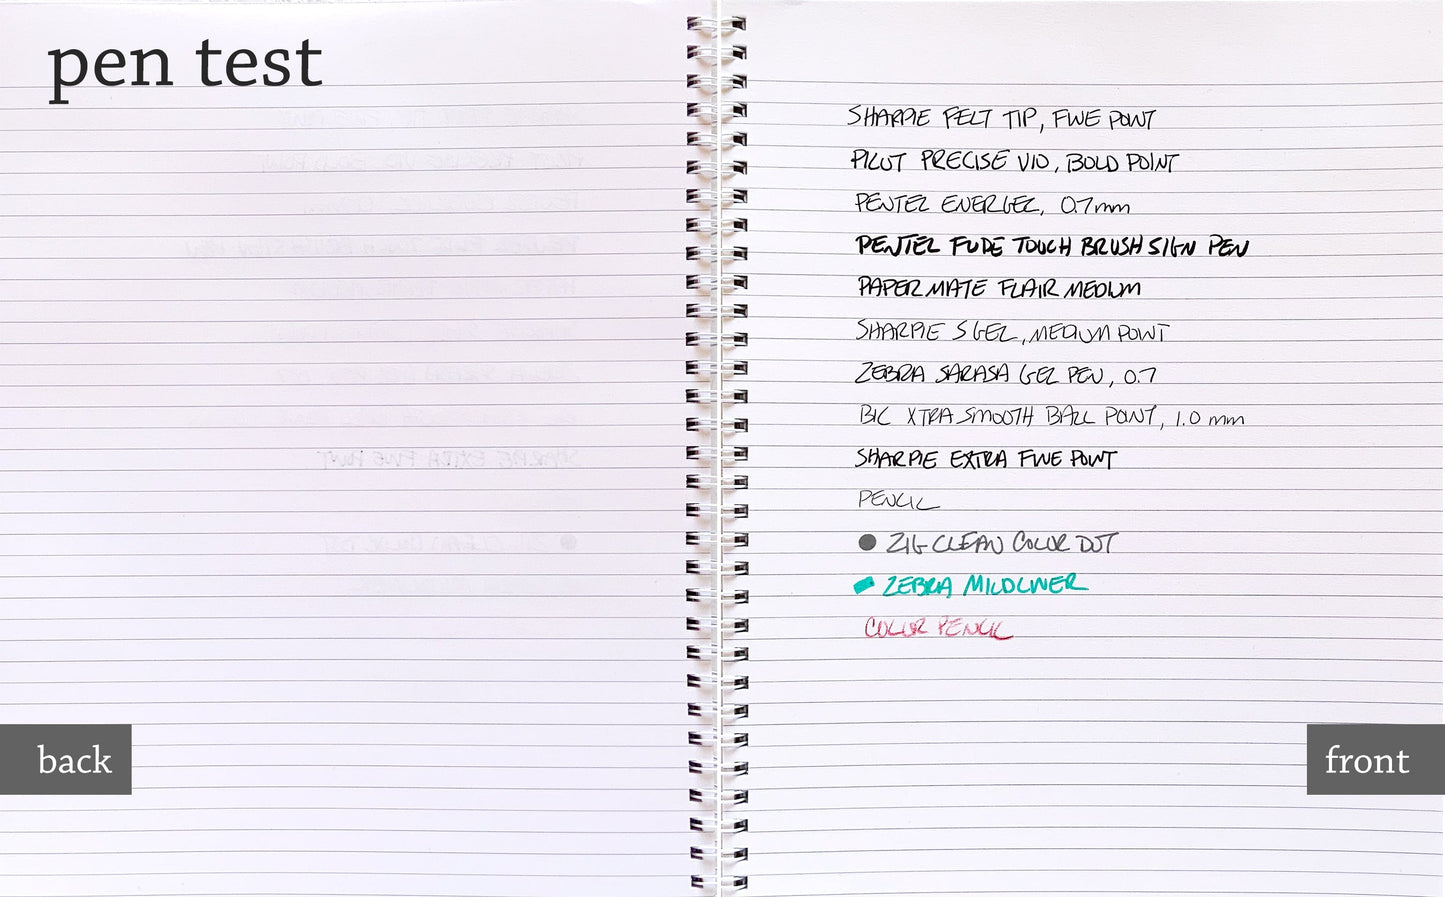 pen test
SHARPIE FELT TIP, FINE POINT
PILOT PRECISE V10, BOLD POINT
PENTEL ENERGEL, 0.7mm
PENTEL FUDE TOUCH BRUSH SIGN PEN
PAPERMATE FLAIR MEDIUM
SHARPIE S GEL, MEDIUM POINT
ZEBRA SARASA GEL PEN, 0.7
BIC XTRA SMOOTH BALL POINT, 1.0 mm
SHARPIE EXTRA FINE POINT
PENCIL
ZIG CLEAN COLOR DOT
ZEBRA MILDLINER
COLOR PENCIL
back
front